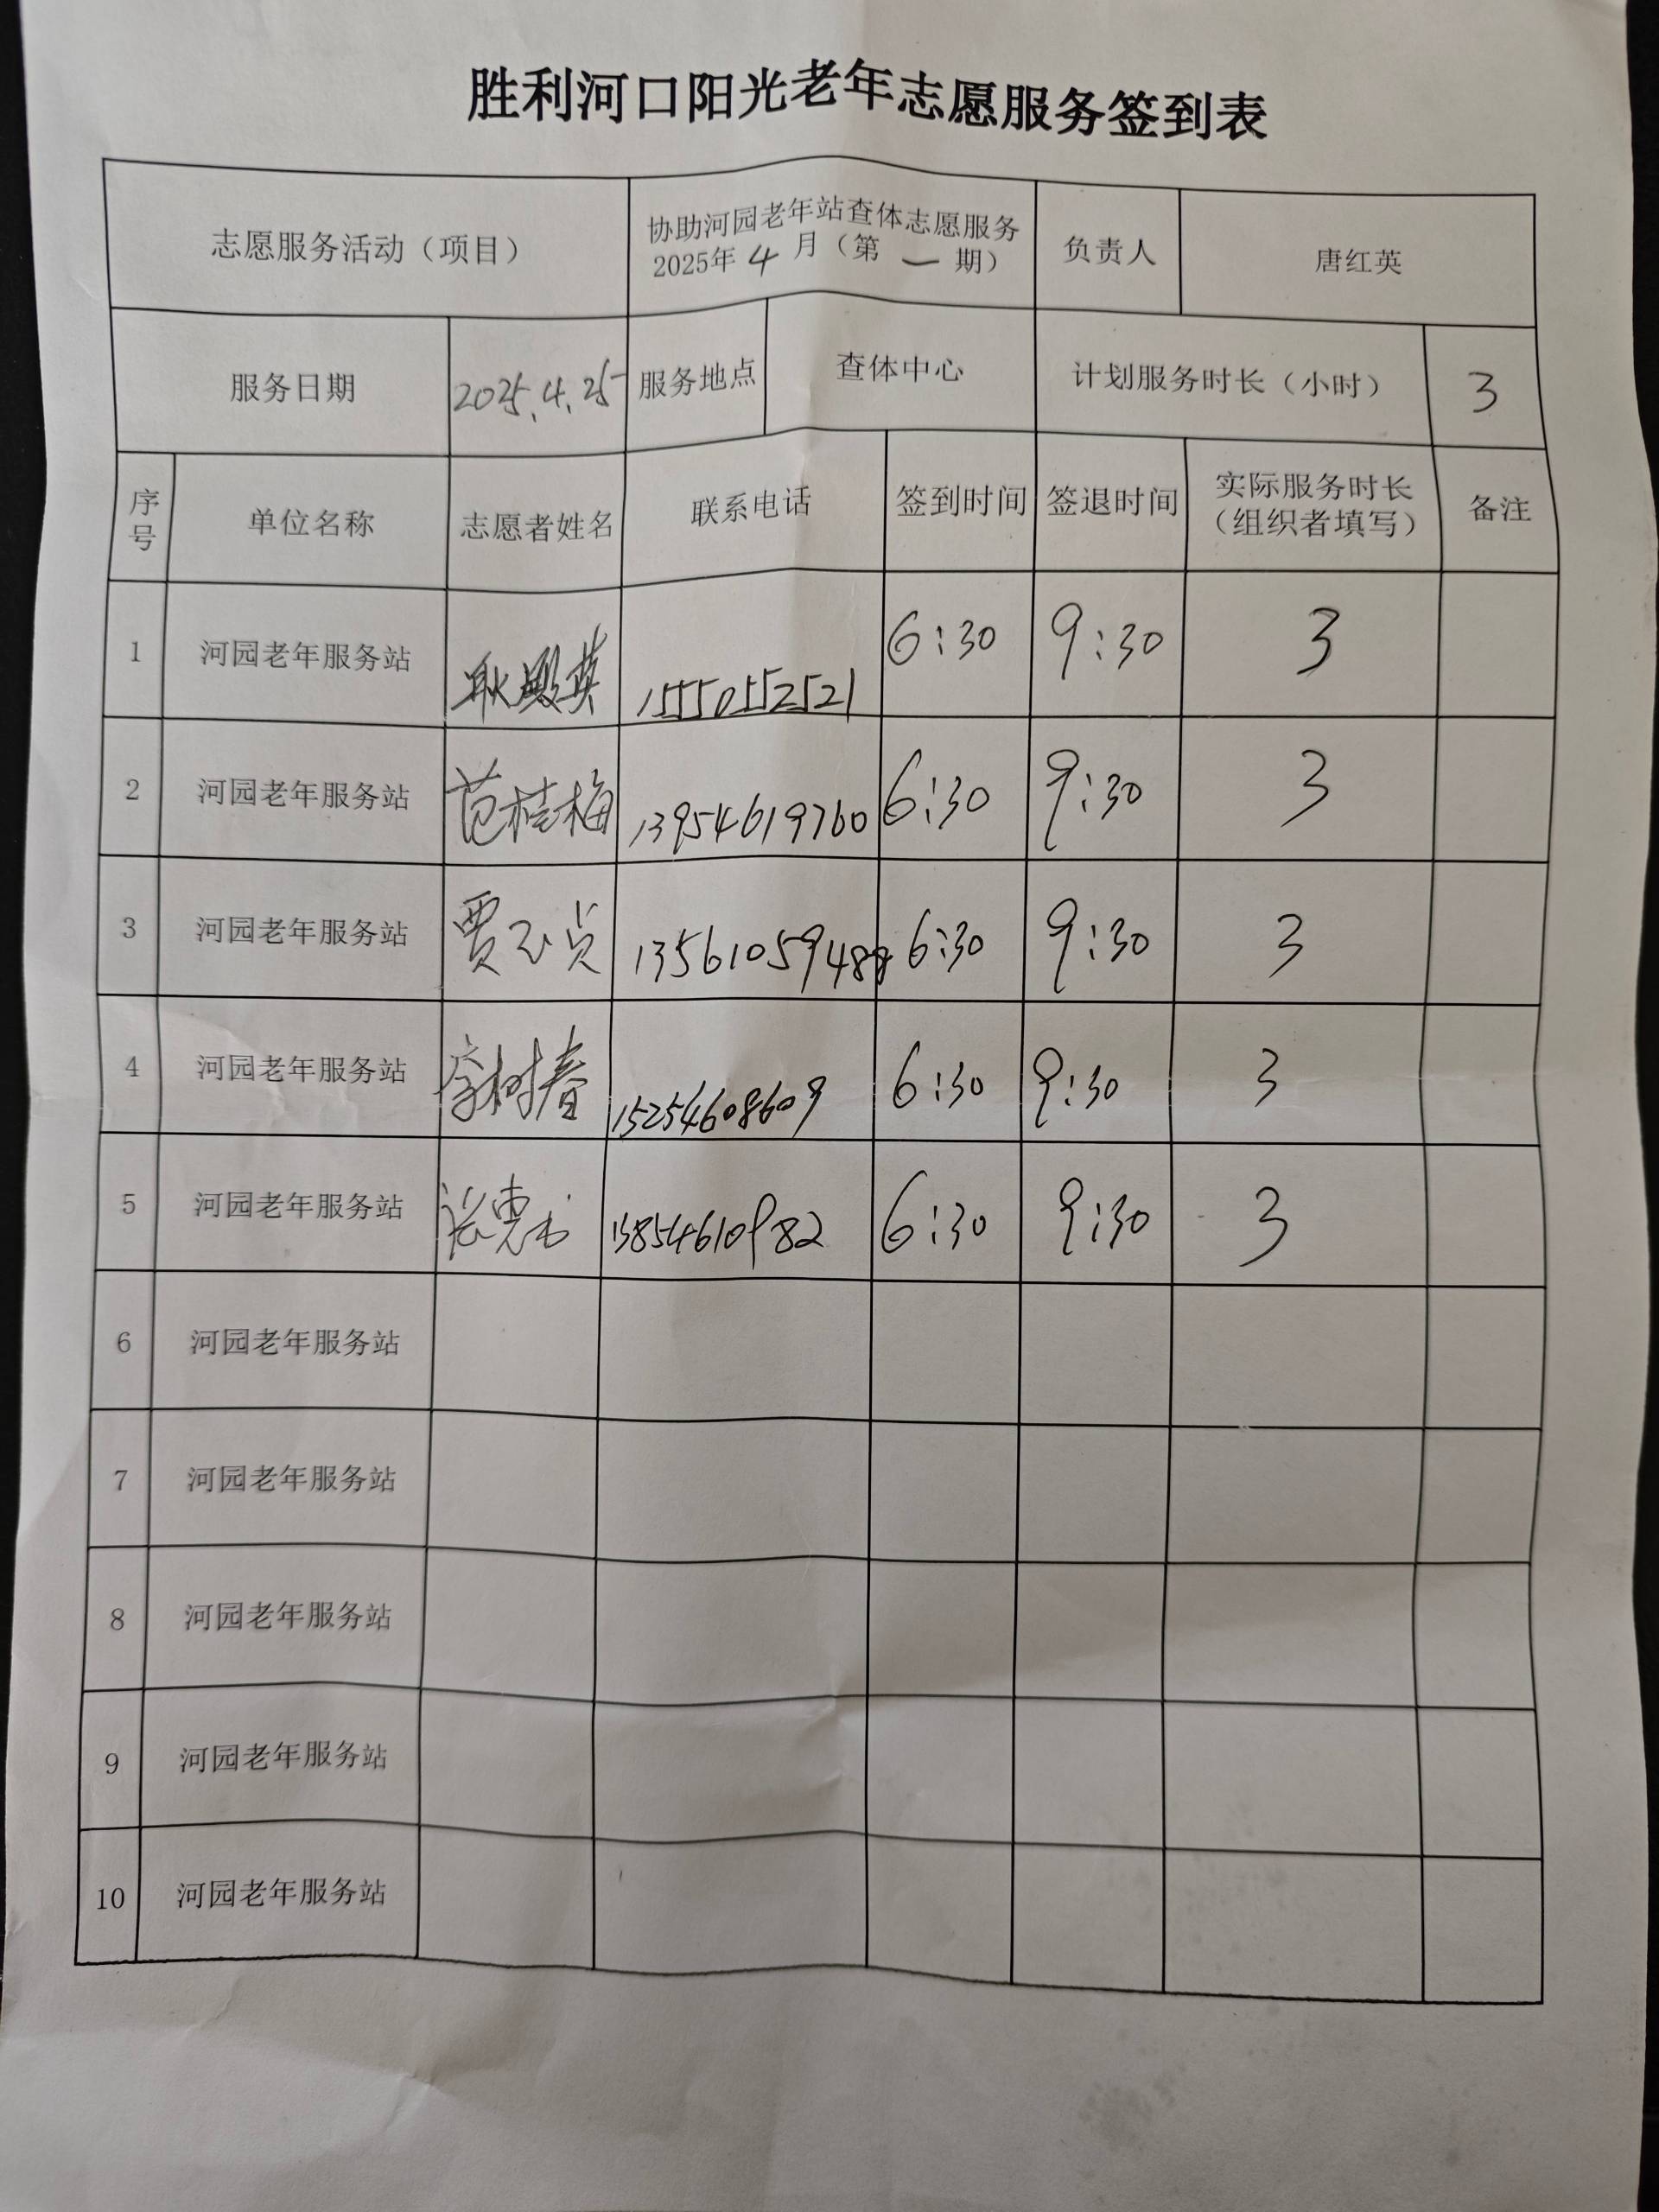 胜利河口阳光老年志愿服务签到表
志愿服务活动（项目） 协助河园老年站查体志愿服务 2025年4月（第一期） 负责人 唐红英
服务日期 2025.4.25 服务地点 查体中心 计划服务时长（小时） 3
序号 单位名称 志愿者姓名 联系电话 签到时间 签退时间 实际服务时长（组织者填写） 备注
1 河园老年服务站 耿殿英 15550552521 6:30 9:30 3
2 河园老年服务站 范桂梅 13954619760 6:30 9:30 3
3 河园老年服务站 贾玉贞 1356105948 6:30 9:30 3
4 河园老年服务站 树春 15254608609 6:30 9:30 3
5 河园老年服务站 张惠 13854610982 6:30 9:30 3
6 河园老年服务站
7 河园老年服务站
8 河园老年服务站
9 河园老年服务站
10 河园老年服务站